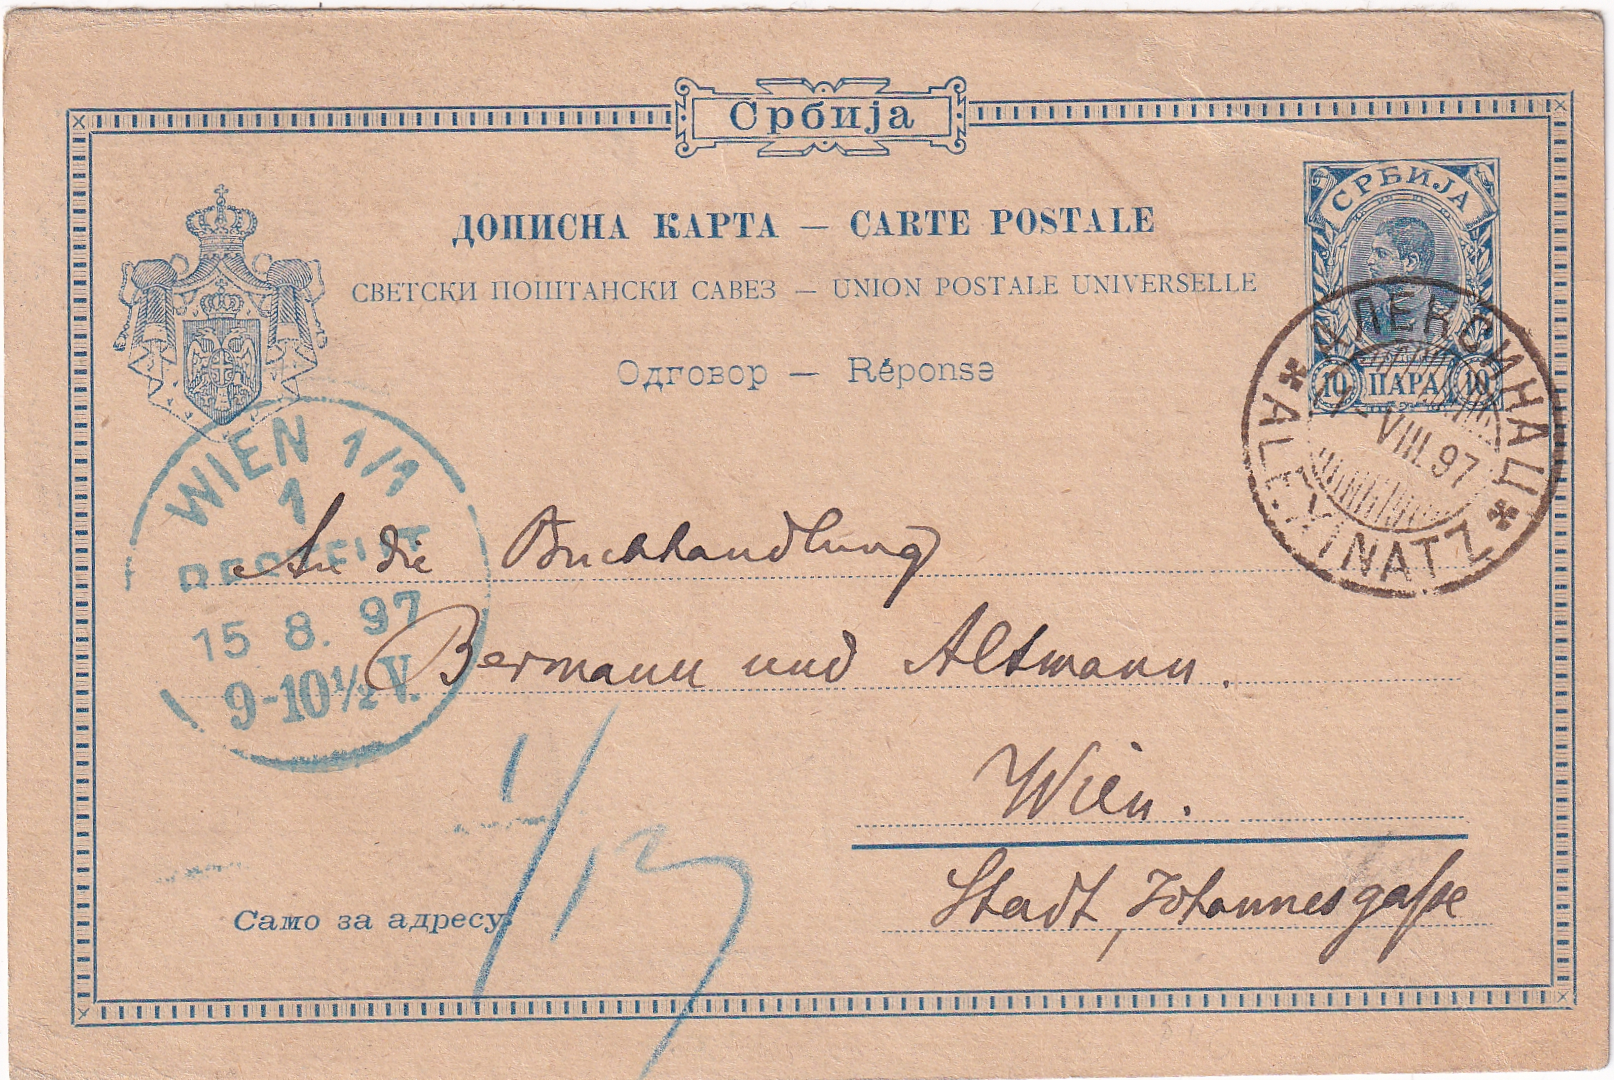 Србија
ДОПИСНА КАРТА — CARTE POSTALE
СВЕТСКИ ПОШТАНСКИ САВЕЗ — UNION POSTALE UNIVERSELLE
Одговор — Réponse
СРБИЈА
10 ПАРА 10
АЛЕКСИНАЦ
VIII.97
ALEXINATZ
WIEN 1/1
1
BESTELLT
15 8. 97
9-10½ V.
An die Buchhandlung
Bermann und Altmann.
Wien.
Stadt, Johannesgaſse
Само за адресу.
1/13